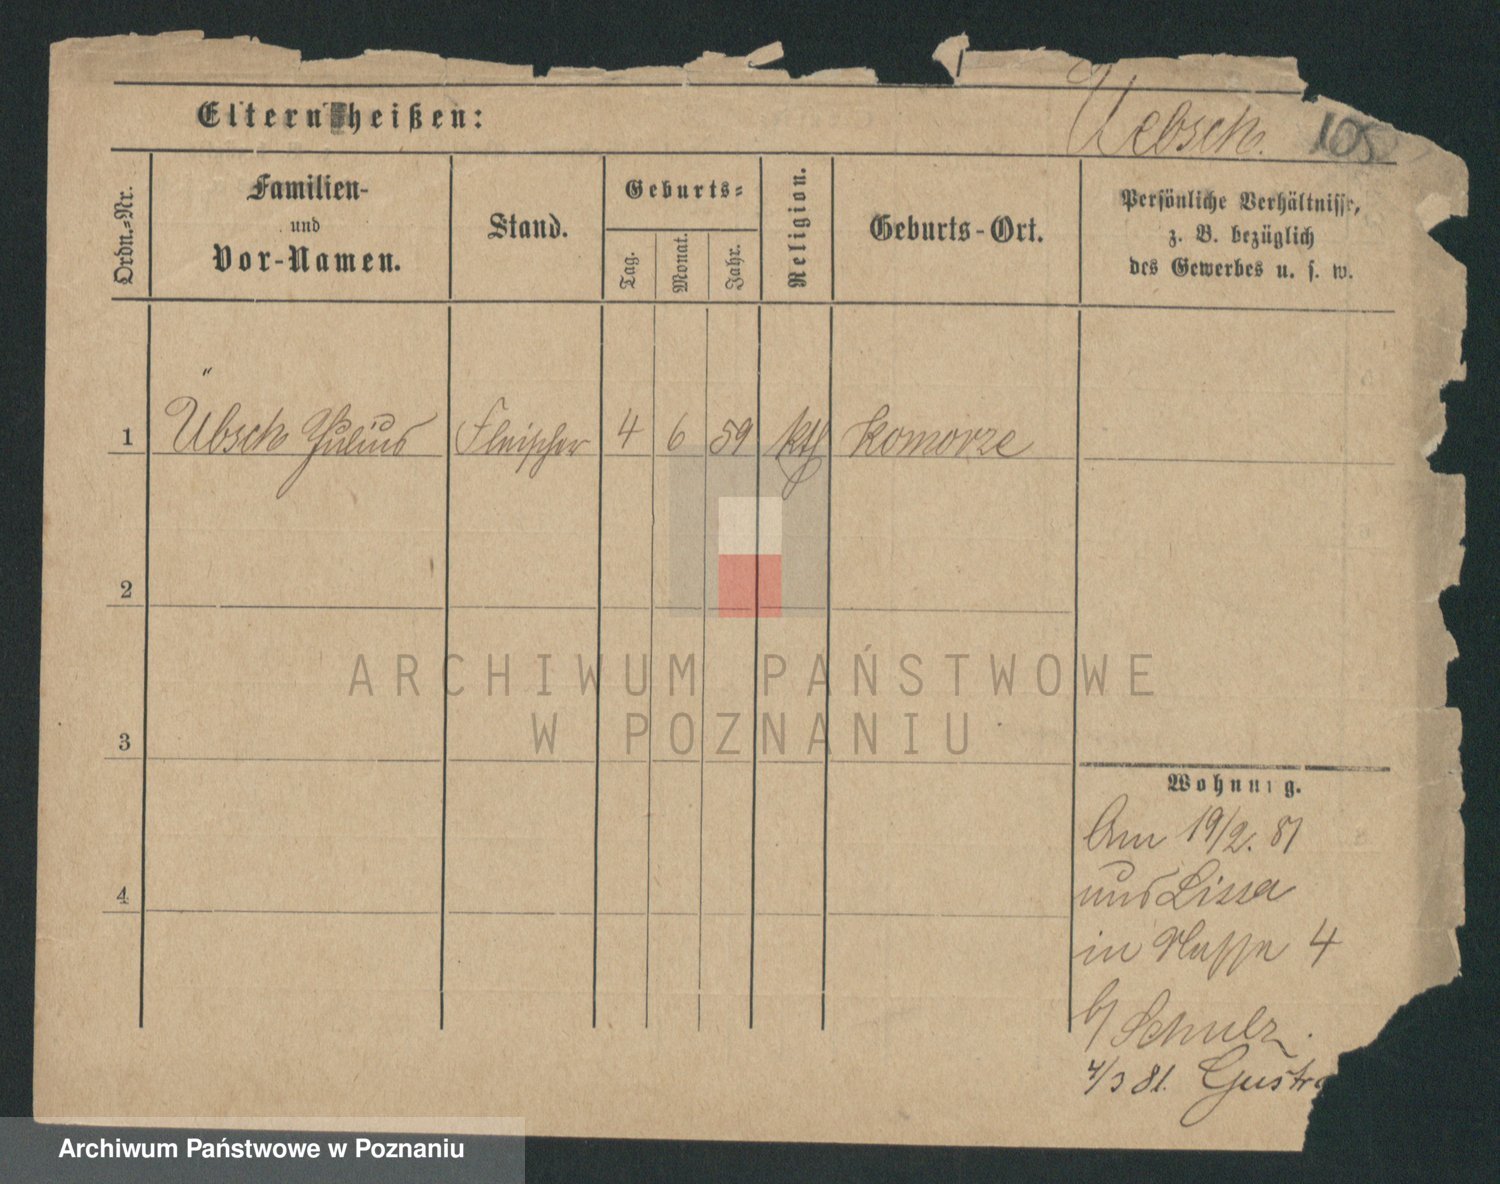 Uebsck. 105
Eltern heißen:
Ordn.-Nr.
Familien-
und
Vor-Namen.
Stand.
Geburts-
Tag.
Monat.
Jahr.
Religion.
Geburts-Ort.
Persönliche Verhältnisse,
z. B. bezüglich
des Gewerbes u. s. w.
1 Übsck Julius Fleischer 4 6 59 kth Komorze
2
3
4
Wohnung.
Am 19/2. 81
aus Lissa
in 4
b/ Schulz.
4/3 81. Gustr
ARCHIWUM PAŃSTWOWE
W POZNANIU
Archiwum Państwowe w Poznaniu